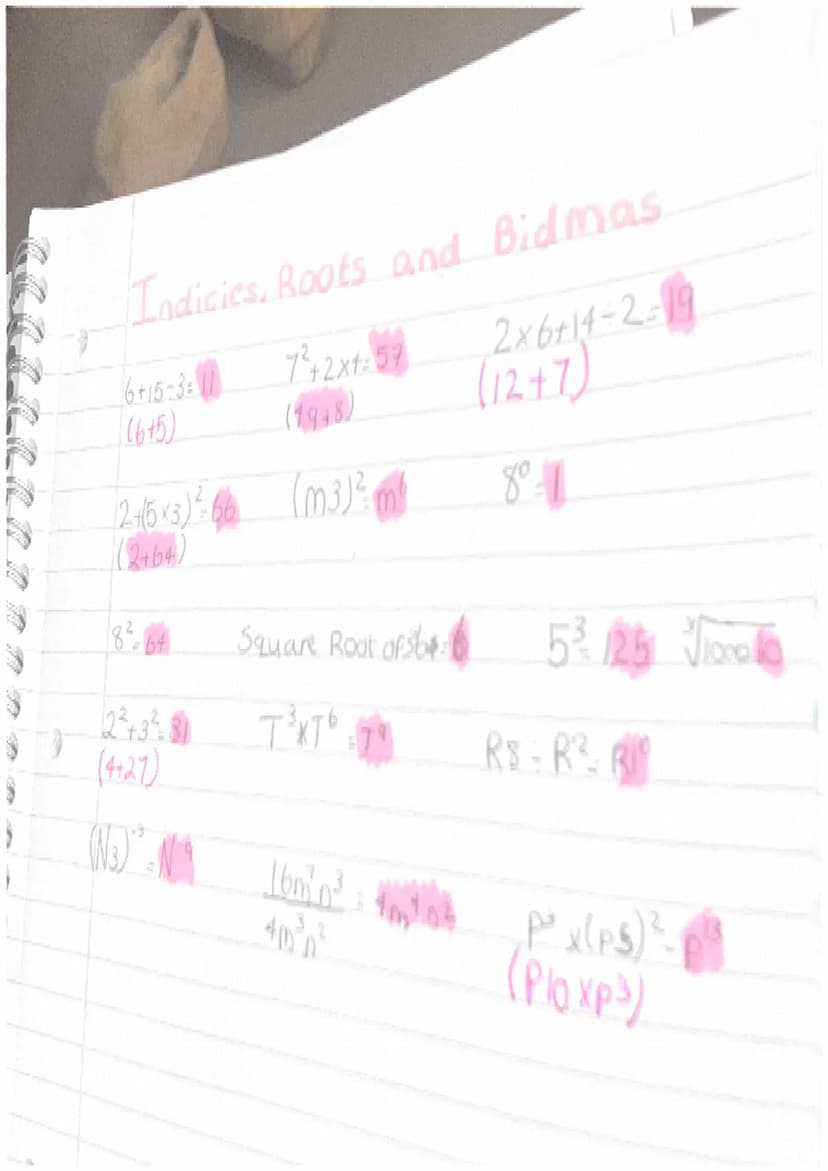 Indicies, Roots and Bidmas
6+15÷3=11 7²+2x4=57 2x6+14÷2=19
(6+5) (49+8) (12+7)
2+(5x3)²=66 (m3)²=m⁶ 8⁰=1
(2+64)
8²=64 Square Root of 36=6 5³=125 ³√1000=10
2²+3²=31 T³xT⁶=T⁹ R8÷R⁻²=R10
(4+27)
(N3)⁻³=N⁻⁹ 16m⁷n³
4m³n² P³x(P5)²=P¹³
(P10xP³)